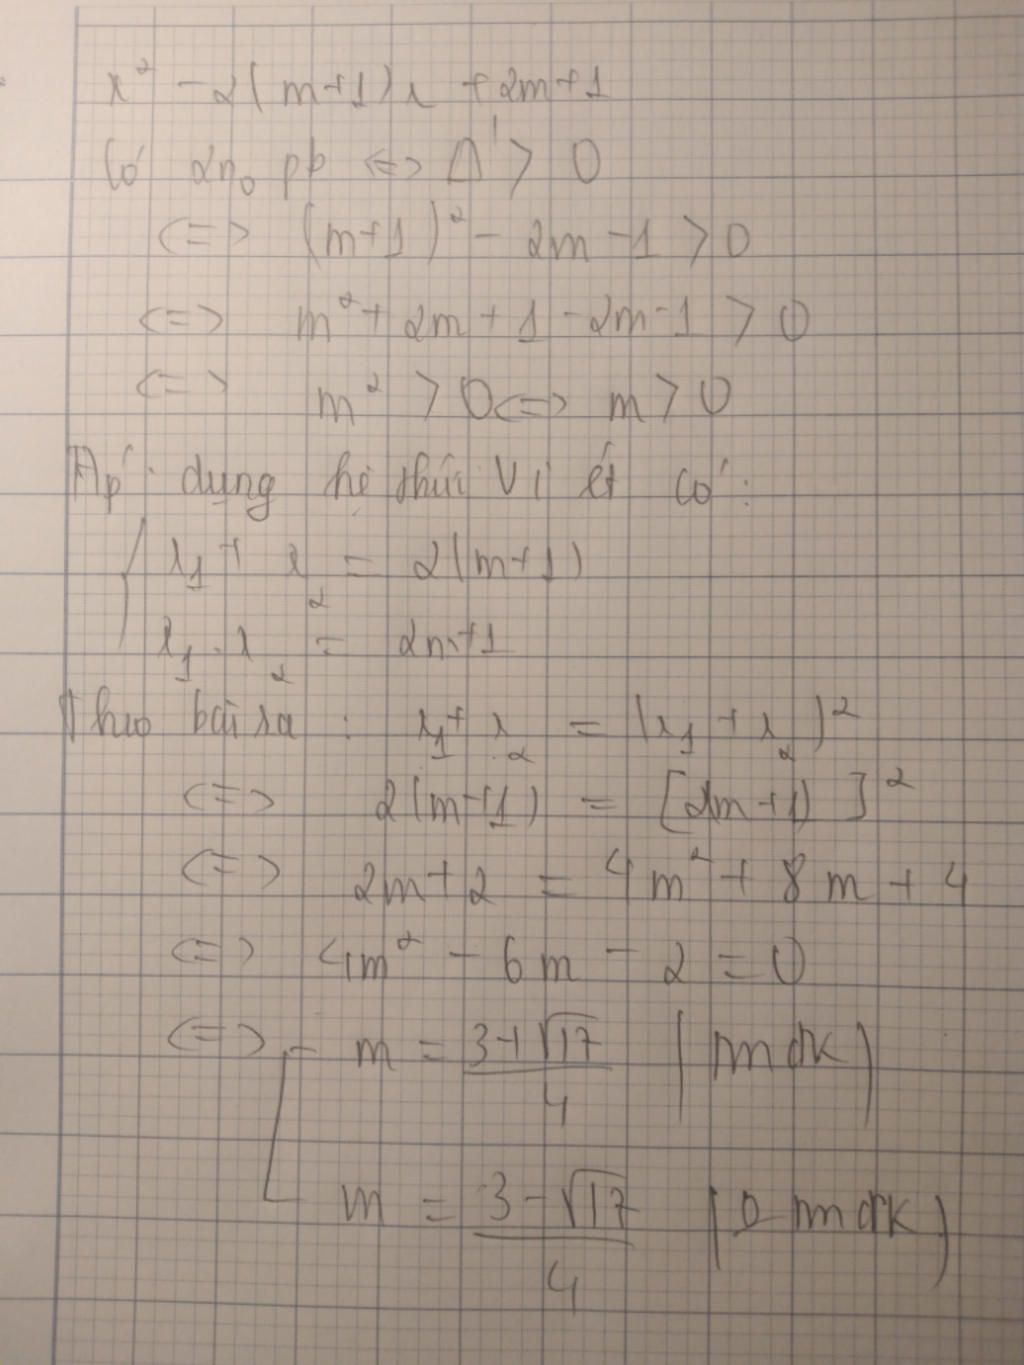 x² - 2(m+1)x + 2m+1
Có 2n₀ pb <=> Δ' > 0
<=> (m+1)² - 2m - 1 > 0
<=> m² + 2m + 1 - 2m - 1 > 0
<=> m² > 0 <=> m > 0
Áp dụng hệ thức Vi ét có:
{ x₁ + x₂ = 2(m+1)
x₁ . x₂ = 2m+1
Theo bài ra : x₁ + x₂ = (x₁ + x₂)²
<=> 2(m+1) = [2(m+1)]²
<=> 2m + 2 = 4m² + 8m + 4
<=> 4m² - 6m - 2 = 0
<=> [ m = (3+√17)/4 (tmđk)
m = (3-√17)/4 (0 tmđk)